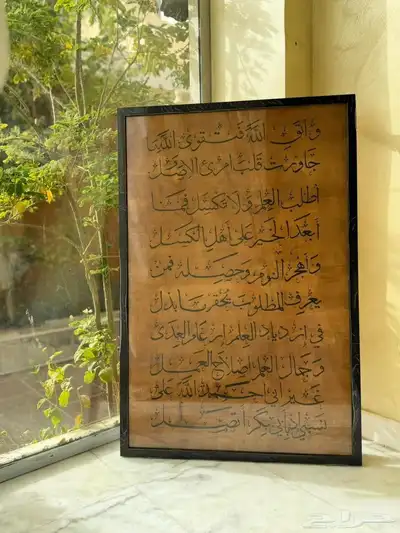 واتق الله فتقوى الله ما
جاورت قلب امرئ إلا وصل
أطلب العلم ولا تكسل فما
أبعد الخير على أهل الكسل
وأهجر النوم وحصله فمن
يعرف المطلوب يحقر ما بذل
في ازدياد العلم إرغام العدى
وجمال العلم إصلاح العمل
غير أني أحمد الله على
نسبي إذ بأبي بكر اتصل
حراج